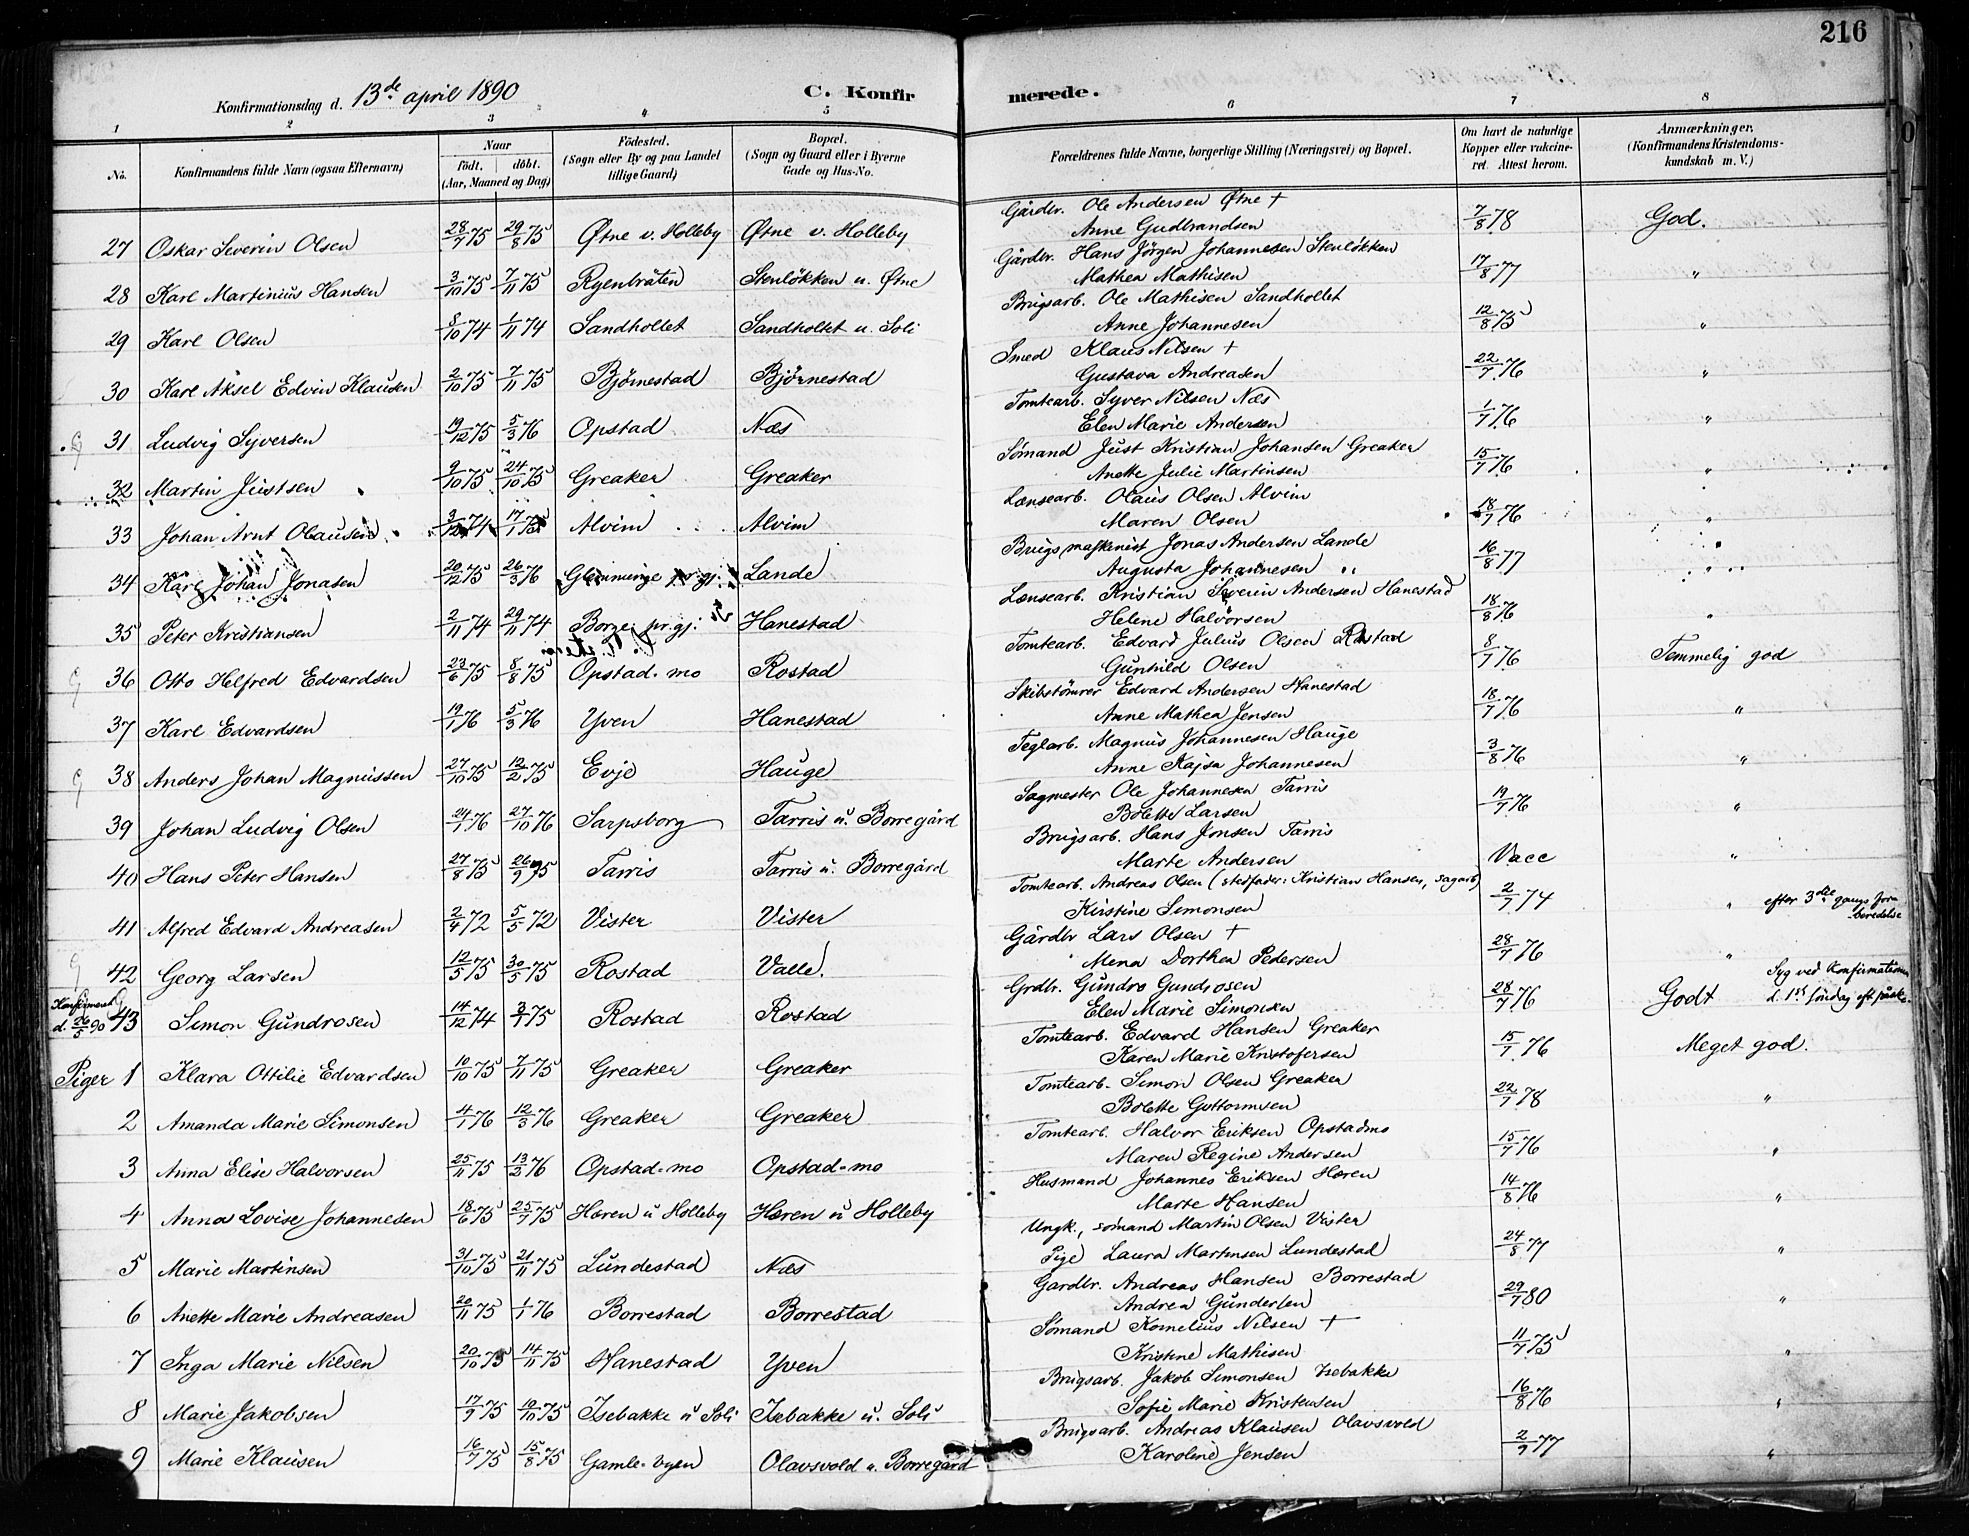 216
Konfirmationsdag d. 13de april 1890
C. Konfir merede.
1 2 3 4 5 6 7 8
No. Konfirmandens fulde Navn (ogsaa Efternavn) Naar födt. döbt. (Aar, Maaned og Dag) Födested. (Sogn eller By og paa Landet tillige Gaard) Bopæl. (Sogn og Gaard eller i Byerne Gade og Hus-No. Forældrenes fulde Navne, borgerlige Stilling (Næringsvei) og Bopæl. Om havt de naturlige Kopper eller vakcineret. Attest herom. Anmærkninger. (Konfirmandens Kristendomskundskab m. V.)
27 Oskar Severin Olsen 28/7 75 29/8 75 Østne v. Holleby Østne v. Holleby Gårdbr. Ole Andersen Østne + 7/8 78 God.
Anne Gudbrandsen
28 Karl Martinius Hansen 3/10 75 7/11 75 Ryenbråten Stenløkken u. Østne Gårdbr. Hans Jörgen Johannesen Stenløkken 17/8 77 "
Mathea Mathisen
29 Karl Olsen 8/10 74 1/11 74 Sandhollet Sandholtet u. Soli Brugsarb. Ole Mathisen Sandhollet 12/8 75 "
Anne Johannesen
30 Karl Aksel Edvin Klausen 2/10 75 7/11 75 Bjørnestad Bjørnestad Smed Klaus Nilsen + 22/7 76 "
Gustava Andreasen
31 Ludvig Syversen 19/12 75 5/3 76 Opstad Næs Tomtearb. Syver Nilsen Næs 1/7 76 "
Elen Marie Andersen
32 Martin Justsen 9/10 75 24/10 75 Greaker Greaker Sømand Just Kristian Johansen Greaker 15/7 76 "
Anette Julie Martinsen
33 Johan Arnt Olausen 3/12 74 17/1 75 Alvim Alvim Lænsearb. Olaus Olsen Alvim 18/7 76 "
Maren Olsen
34 Karl Johan Jonasen 20/12 75 26/3 76 Glemminge pr.gj. Lande Brugsmaskinist Jonas Andersen Lande 16/8 77 "
Augusta Johannesen "
35 Peter Kristiansen 2/11 74 29/11 74 Borge pr.gj. Hanestad Lænsearb. Kristian Severin Andersen Hanestad 18/8 76 "
Helene Halvorsen
36 Otto Helfred Edvardsen 23/6 75 8/8 75 Opstad-mo Rostad Tomtearb. Edvard Julius Olsen Rostad 8/7 76 Temmelig god
Gunhild Olsen
37 Karl Edvardsen 19/1 76 5/3 76 Yven Hanestad Skibstömrer Edvard Andersen Hanestad 18/7 76 "
Anne Mathea Jensen
38 Anders Johan Magnussen 27/10 75 12/2 75 Evje Hauge Teglarb. Magnus Johannesen Hauge 3/8 76 "
Anne Kajsa Johannesen
39 Johan Ludvig Olsen 24/1 76 27/10 76 Sarpsborg Tarris u. Borregård Sagmester Ole Johannesen Tarris 19/7 76 "
Bolette Larsen
40 Hans Peter Hansen 27/8 75 26/9 75 Tarris Tarris u. Borregård Brugsarb. Hans Jonsen Tarris Vacc "
Marte Andersen
41 Alfred Edvard Andreasen 2/4 72 5/5 72 Vister Vister Tomtearb. Andreas Olsen (stedfader: Kristian Hansen, sagarb) 2/7 74 " efter 3die gangs forberedelse
Kirstine Simonsen
42 Georg Larsen 12/5 75 30/5 75 Rostad Valle. Gårdbr Lars Olsen + 28/7 76 "
Mena Dorthea Pedersen
Konfirmeret d. 26/5 90 43 Simon Gundrosen 14/12 74 3/1 75 Rostad Rostad Grdbr. Gundro Gundrosen 28/7 76 Godt Syg ved Konfirmationen d. 1st söndag eft. påske.
Elen Marie Simonsen
Piger 1 Klara Ottilie Edvardsen 10/10 75 7/11 75 Greaker Greaker Tomtearb. Edvard Hansen Greaker 15/7 76 Meget god.
Karen Marie Kristofersen
2 Amanda Marie Simonsen 4/1 76 12/3 76 Greaker Greaker Tomtearb. Simon Olsen Greaker 22/7 78 "
Bolette Guttormsen
3 Anna Elise Halvorsen 25/11 75 13/2 76 Opstad-mo Opstad-mo Tomtearb. Halvor Eriksen Opstadmo 15/7 76 "
Maren Regine Andersen
4 Anna Lovise Johannesen 18/6 75 25/7 75 Hæren u Holleby Hæren u Holleby Husmand Johannes Eriksen Hæren 14/8 76 "
Marte Hansen
5 Marie Martinsen 31/10 75 21/11 75 Lundestad Næs Ungk., sömand Martin Olsen Vister 24/8 77 "
Pige Laura Martinsen Lundestad
6 Anette Marie Andreasen 20/11 75 1/1 76 Borrestad Borrestad Gardbr. Andreas Hansen Borrestad 29/7 80 "
Andrea Gundersen
7 Inga Marie Nilsen 20/10 75 14/11 75 Hanestad Yven Sømand Kornelius Nilsen + 11/7 75 "
Kristine Mathisen
8 Marie Jakobsen 17/9 75 10/10 75 Isebakke u Soli Isebakke u. Soli Brugsarb. Jakob Simonsen Isebakke 16/8 76 "
Sofie Marie Kristensen
9 Marie Klausen 16/7 75 15/8 75 Gamle-byen Olavsvold u. Borregård Brugsarb. Andreas Klausen Olavsvold 2/9 77 "
Karoline Jensen